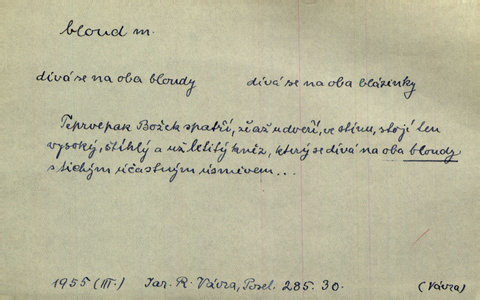 bloud m.
dívá se na oba bloudy
dívá se na oba blázinky
Teprve pak Božek spatří, že až u dveří, ve stínu, stojí ten
vysoký, štíhlý a už letitý kněz, který se dívá na oba bloudy
s tichým účastným úsměvem...
1955 (III.) Jar. R. Vávra, Posel. 285. 30. (Vávra)